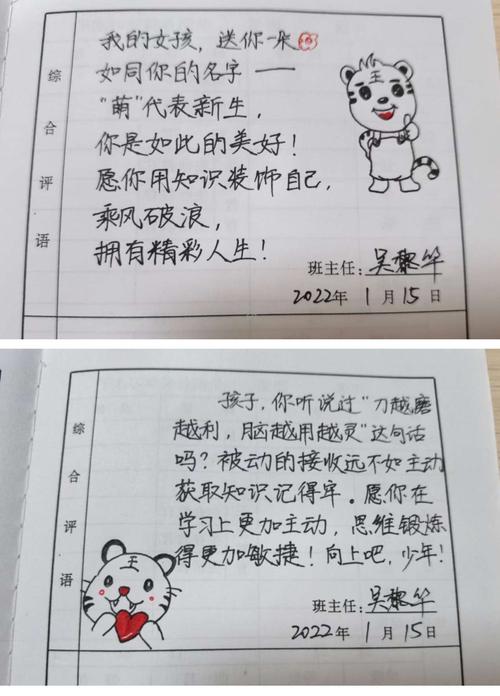 综合评语
我的女孩，送你一朵
如同你的名字——
"萌"代表新生，
你是如此的美好！
愿你用知识装饰自己，
乘风破浪，
拥有精彩人生！
班主任：吴黎华
2022年 1月15日
综合评语
孩子，你听说过"刀越磨
越利，脑越用越灵"这句话
吗？被动的接收远不如主动
获取知识记得牢。愿你在
学习上更加主动，思维锻炼
得更加敏捷！向上吧，少年！
班主任：吴黎华
2022年 1月15日